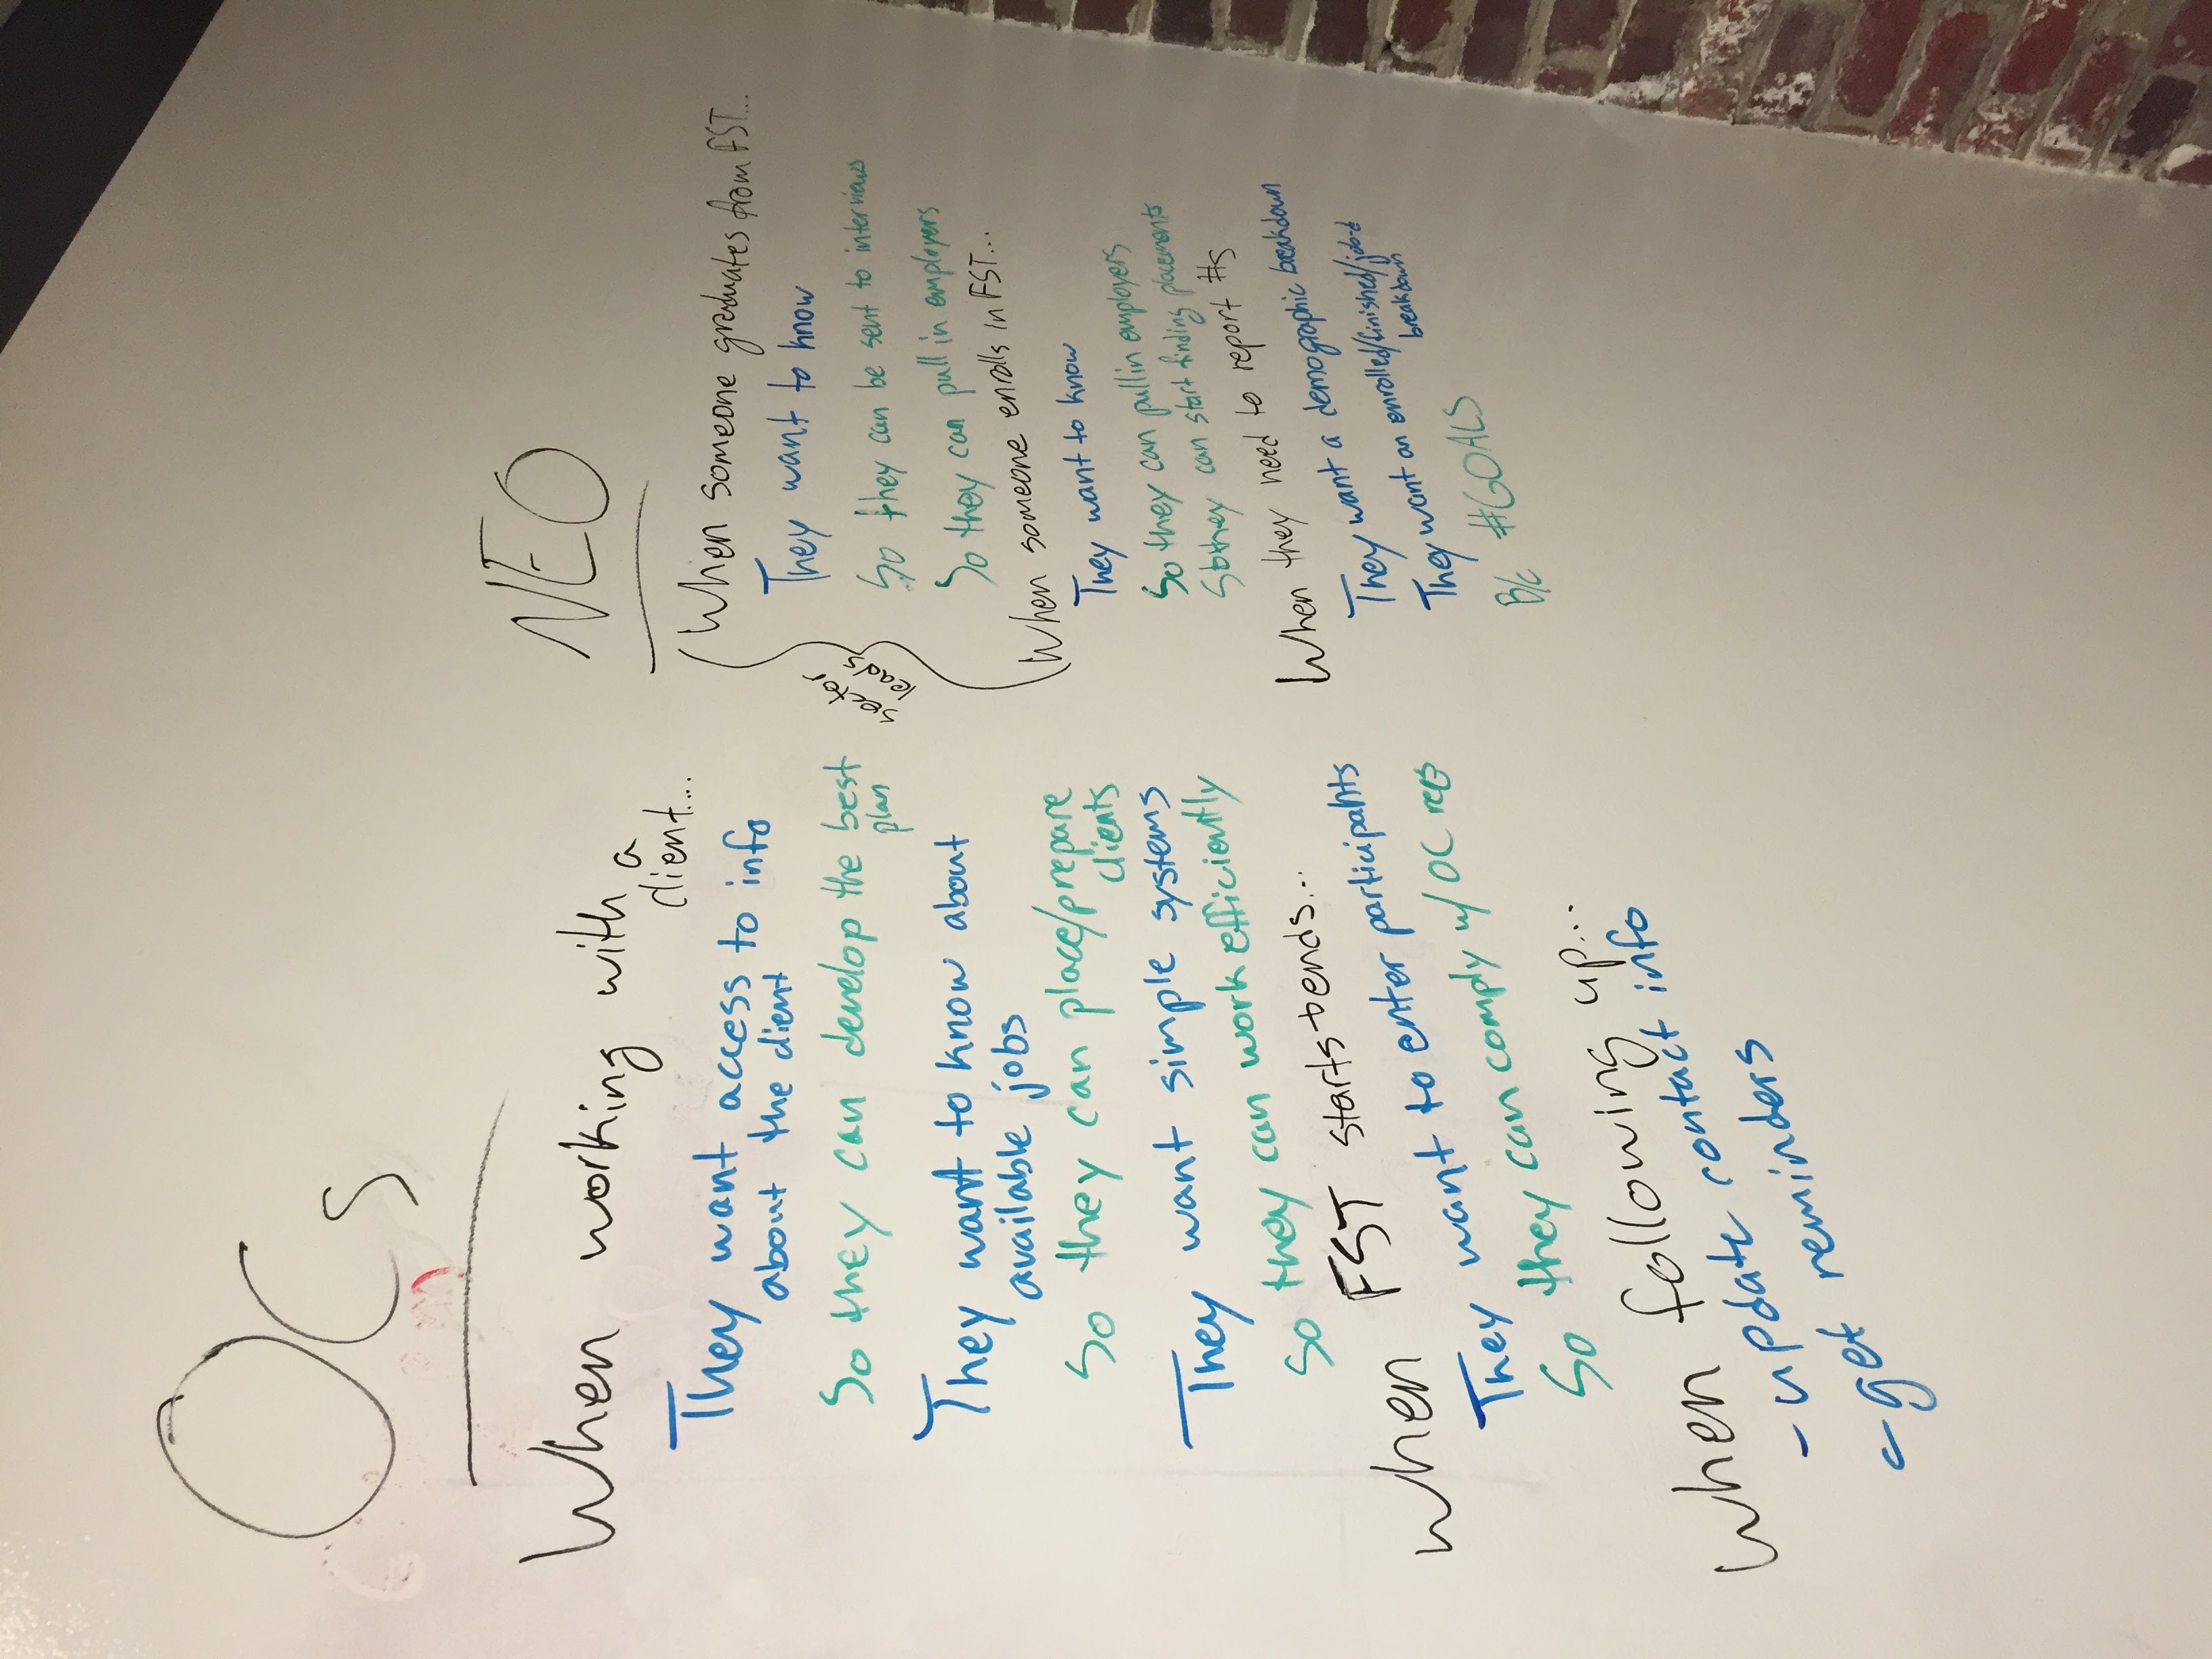 OCs
When working with a
client...
They want access to info
about the client
So they can develop the best
plan
They want to know about
available jobs
So they can place/prepare
clients
They want simple systems
So they can work efficiently
When FST starts + ends...
They want to enter participants
So they can comply w/ OC reqs
When following up...
- update contact info
- get reminders
NEO
sector
leads
When someone graduates from FST...
They want to know
So they can be sent to interviews
So they can pull in employers
When someone enrolls in FST...
They want to know
So they can pull in employers
So they can start finding placements
When they need to report #s
They want a demographic breakdown
They want an enrolled/finished/job-d
breakdown
B/c #GOALS